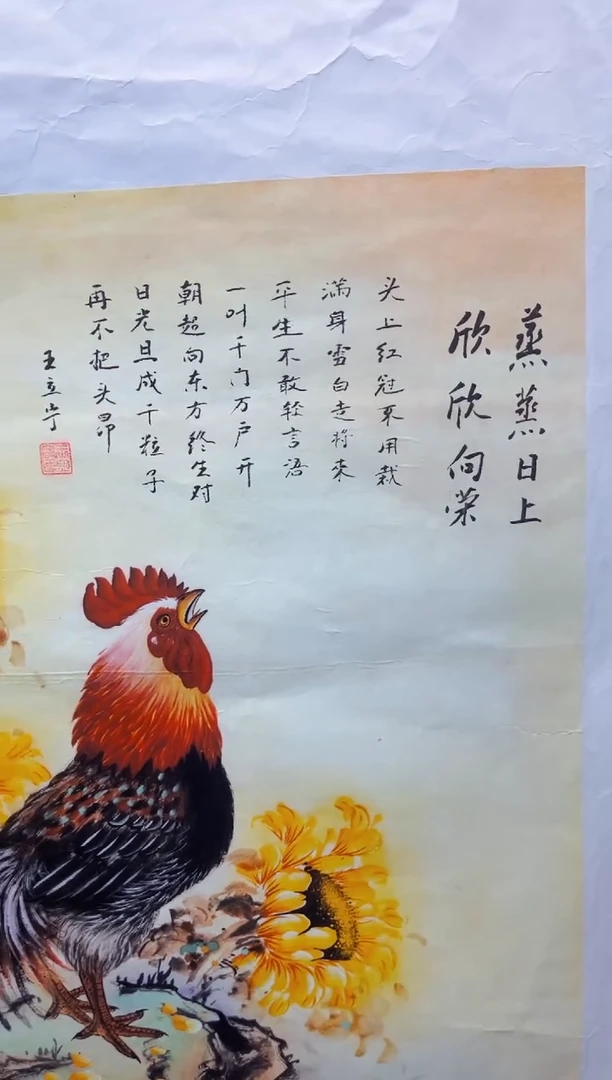 蒸蒸日上
欣欣向荣
头上红冠不用裁
满身雪白走将来
平生不敢轻言语
一叶千门万户开
朝超向东方终生对
日光旦成千粒子
再不把头昂
王立宁